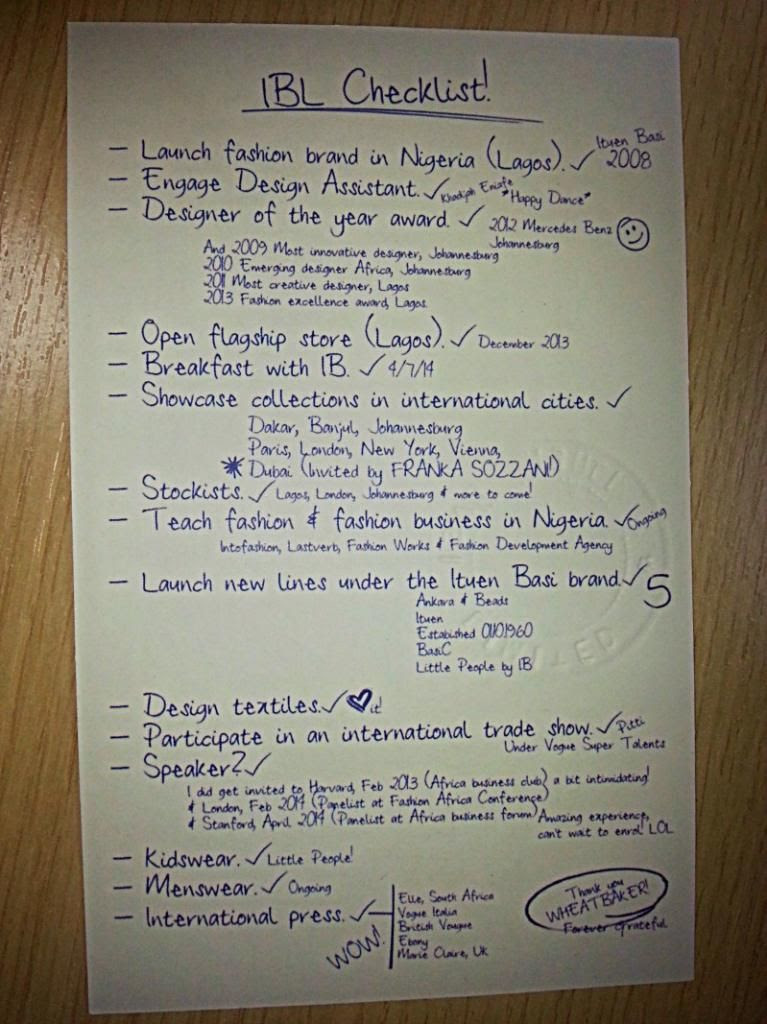 IBL Checklist!
— Launch fashion brand in Nigeria (Lagos). ✓ Ituen Basi 2008
— Engage Design Assistant. ✓ Khadijah Eniafe *Happy Dance*
— Designer of the year award. ✓ 2012 Mercedes Benz
Johannesburg
And 2009 Most innovative designer, Johannesburg
2010 Emerging designer Africa, Johannesburg
2011 Most creative designer, Lagos
2013 Fashion excellence award, Lagos.
— Open flagship store (Lagos). ✓ December 2013
— Breakfast with IB. ✓ 4/7/14
— Showcase collections in international cities. ✓
Dakar, Banjul, Johannesburg
Paris, London, New York, Vienna,
* Dubai (Invited by FRANKA SOZZANI!)
— Stockists. ✓ Lagos, London, Johannesburg & more to come!
— Teach fashion & fashion business in Nigeria. ✓ Ongoing
Intofashion, Lastverb, Fashion Works & Fashion Development Agency
— Launch new lines under the Ituen Basi brand. ✓ 5
Ankara & Beads
Ituen
Estabished 01101960
BasiC
Little People by IB
— Design textiles. ✓ ♡ it!
— Participate in an international trade show. ✓ Pitti
Under Vogue Super Talents
— Speaker? ✓
I did get invited to Harvard, Feb 2013 (Africa business club) a bit intimidating!
& London, Feb 2014 (Panelist at Fashion Africa Conference)
& Stanford, April 2014 (Panelist at Africa business forum) Amazing experience,
can't wait to enrol! LOL
— Kidswear. ✓ Little People!
— Menswear. ✓ Ongoing
— International press. ✓
WOW!
Elle, South Africa
Vogue Italia
British Vougue
Ebony
Marie Claire, UK
Thank you
WHEATBAKER!
Forever Grateful